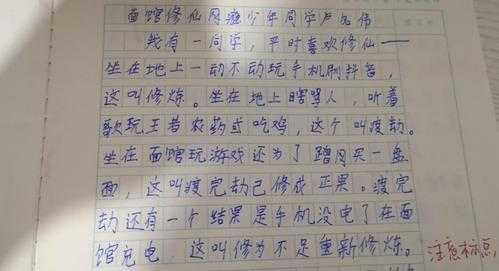 面馆修仙网瘾少年同学卢品伟
我有一同学，平时喜欢修仙——
坐在地上一动不动玩手机刷抖音，
这叫修炼。坐在地上瞎骂人，听着
歌玩王者农药或吃鸡，这个叫渡劫。
坐在面馆玩游戏还为了蹭网买一盘
面，这叫渡完劫已修成正果。渡完
劫还有一个结果是手机没电了在面
馆充电，这叫修为不足重新修炼。
注意标点，